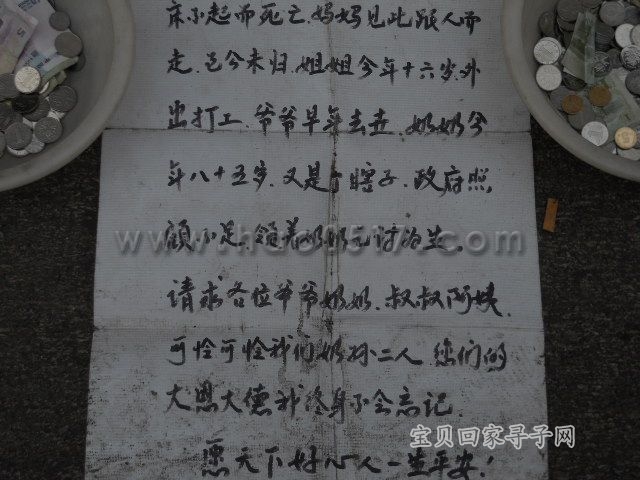 床不起而死亡.妈妈见此跟人而
走.已今未归.姐姐今年十六岁.外
出打工.爷爷早年去世.奶奶今
年八十五岁.又是个瞎子.政府照
顾不足.领着奶奶讨为生。
请求各位爷爷奶奶.叔叔阿姨.
可怜可怜我们奶孙二人.您们的
大恩大德我终身不会忘记.
愿天下好心人一生平安!
宝贝回家寻子网